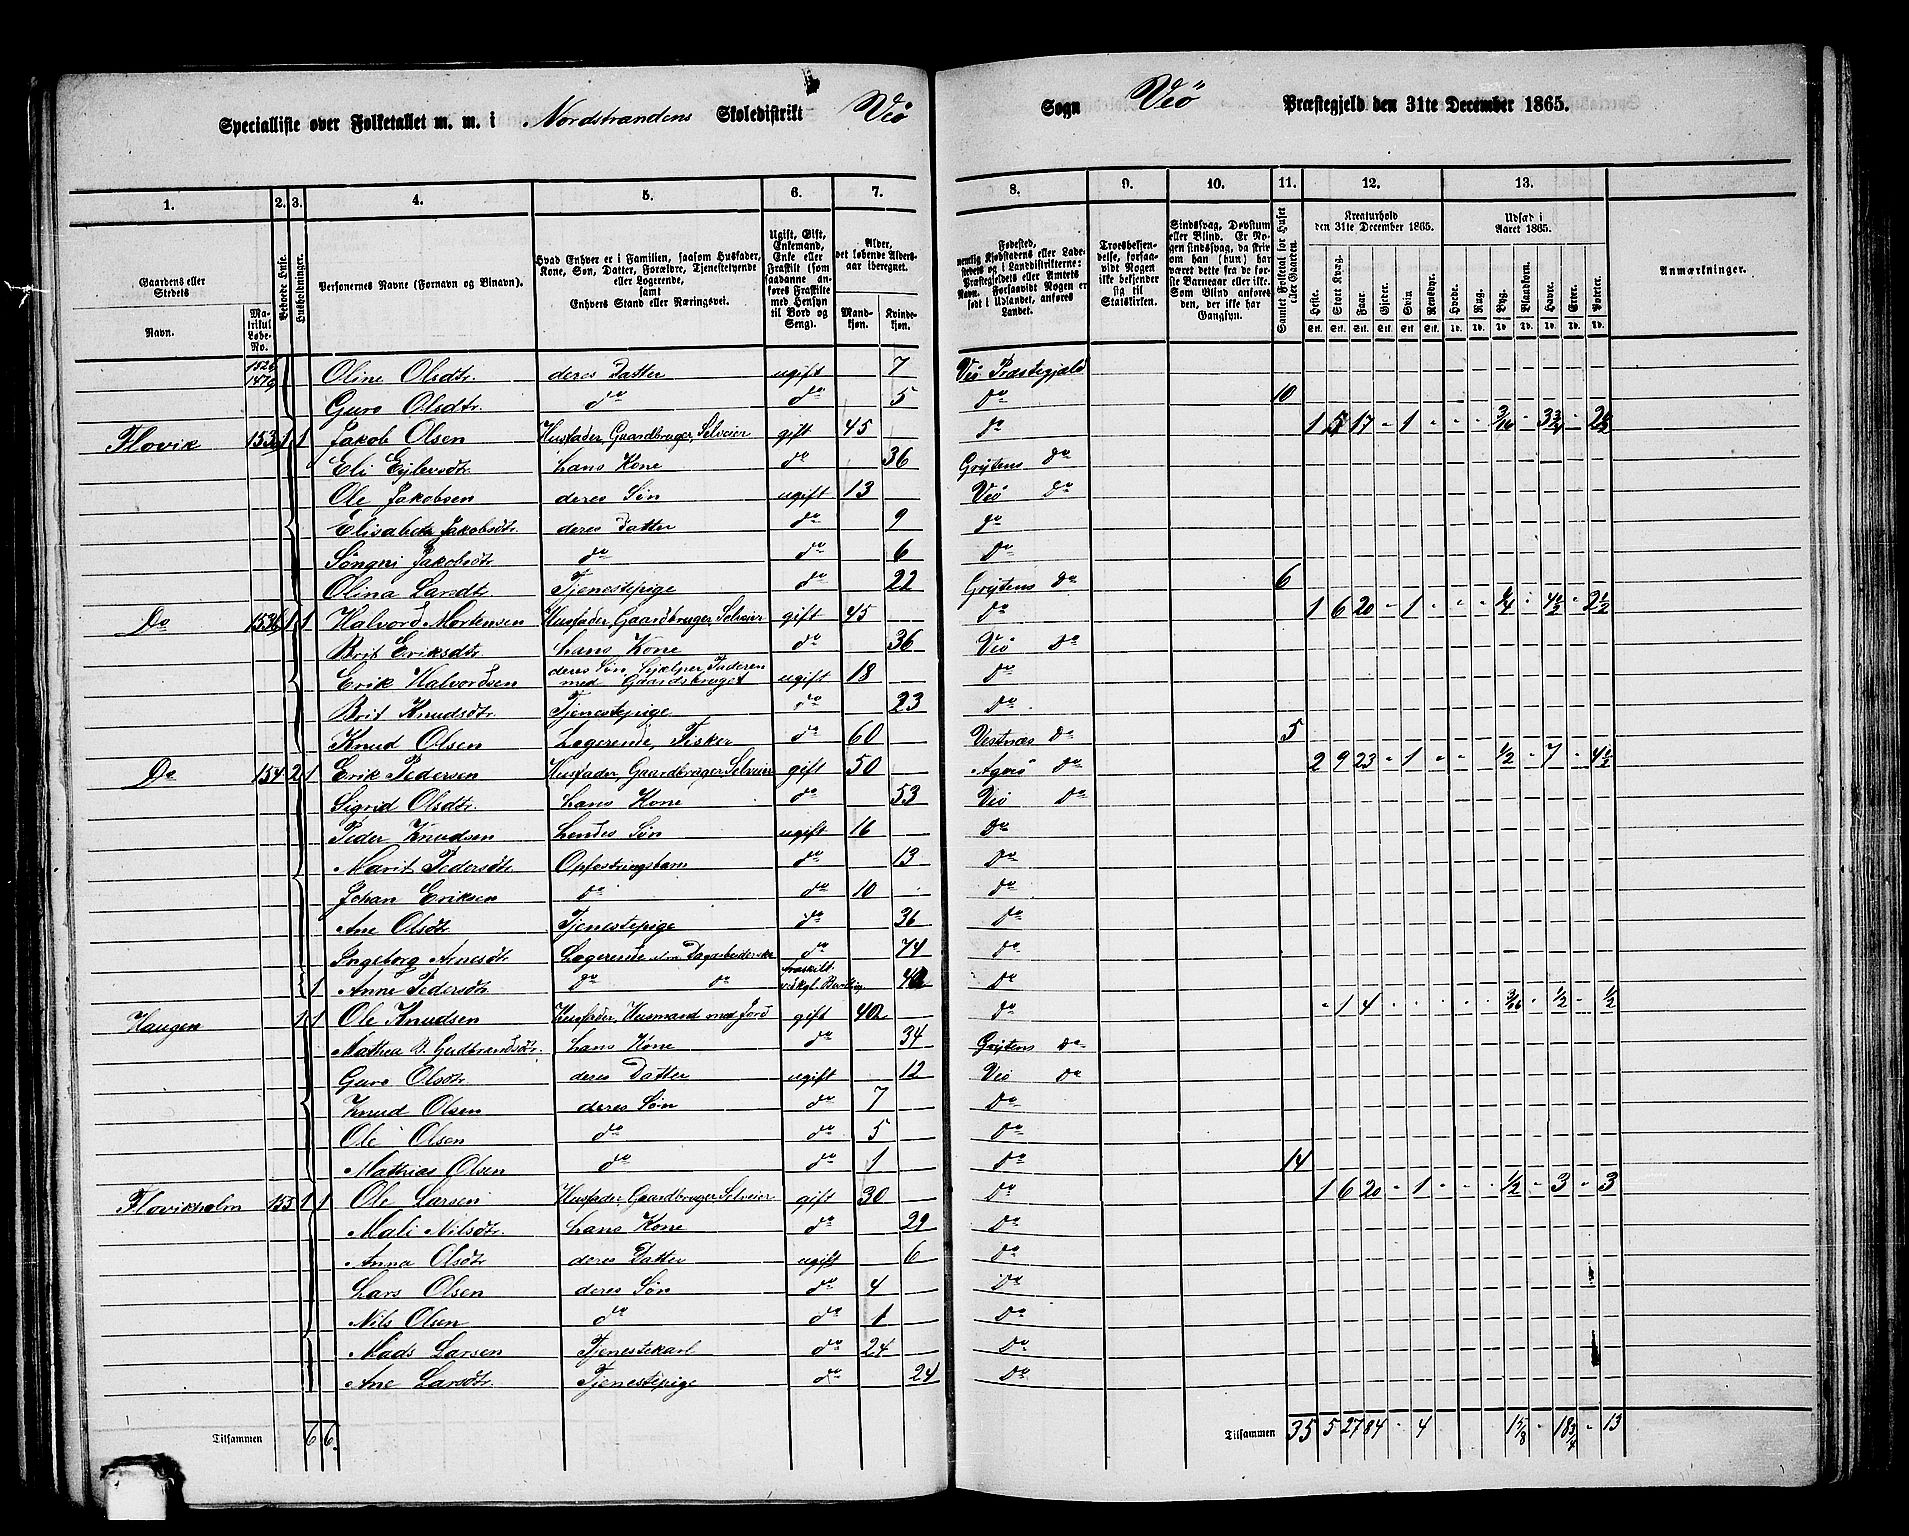 Specialliste over Folketallet m. m. i Nordstrandens Skoledistrikt Veø Sogn Veö Præstegjeld den 31te December 1865.
1. 2. 3. 4. 5. 6. 7. 8. 9. 10. 11. 12. 13.
Gaardens eller Stedets
Navn.
Matrikul Løbe-No.
Beboede Huse.
Husholdninger.
Personernes Navne (Fornavn og Binavn).
Hvad Enhver er i Familien, saasom Husfader, Kone, Søn, Datter, Forældre, Tjenestetyende eller Logerende, samt Enhvers Stand eller Næringsvei.
Ugift, Gift, Enkemand, Enke eller Fraskilt (som saadanne anføres Fraskilte med Hensyn til Bord og Seng).
Alder, det løbende Aldersaar iberegnet.
Mandkjøn. Kvindekjøn.
Fødested, nemlig Kjøbstadens eller Ladestedets og i Landdistrikterne: Præstegjeldets eller Amtets Navn. Forsaavidt Nogen er født i Udlandet, anføres Landet.
Troesbekjendelse, forsaavidt Nogen ikke bekjender sig til Statskirken.
Sindssvag, Døvstum eller Blind. Er Nogen sindssvag, da skrives om han (hun) har været dette fra de første Barneaar eller ikke. Som Blind anføres den, der ikke har Gangsyn.
Samlet Folketal for Huset eller Gaarden.
Kreaturhold den 31te December 1865.
Heste. Stort Kvæg. Faar. Gjeder. Svin. Rensdyr.
Udsæd i Aaret 1865.
Hvede. Rug. Byg. Blandkorn. Havre. Erter. Poteter.
Anmærkninger.
152b 147g Oline Olsdtr. deres Datter ugift 7 Veö Præstegjæld
Guro Olsdtr. do do 5 do 10
Flovik 153a 1 1 Jakob Olsen Husfader, Gaardbruger, Selveier gift 45 do 1 5 17 - 1 - - - 3/16 - 3 3/4 - 2 1/2
Eli Eylersdtr. hans Kone do 36 Grytens do
Ole Jakobsen deres Søn ugift 13 Veö do
Elisabeth Jakobsdtr. deres Datter do 9 do
Søngni Jakobsdtr. do do 6 do
Olina Larsdtr. Tjenestepige do 22 Grytens do 6
Do 153b 1 1 Halvord Mortensen Husfader, Gaardbruger, Selveier gift 45 do 1 6 20 - 1 - - - 1/4 - 4 1/2 - 2 1/2
Brit Eriksdtr. hans Kone do 36 Veö do
Erik Halvordsen deres Søn, hjælper Faderen med Gaardsbruget ugift 18 do
Brit Knudsdtr. Tjenestepige do 23 do
Knud Olsen Logerende, Fisker do 60 Vestnæs do 5
Do 154 2 1 Erik Pedersen Husfader, Gaardbruger Selveier gift 50 Agerö do 2 9 23 - 1 - - - 1/2 - 7 - 4 1/2
Sigrid Olsdtr. hans Kone do 53 Veö do
Peder Knudsen hendes Søn ugift 16 do
Marit Pedersdtr. Opfostringsbarn do 13 do
Johan Eriksen do do 10 do
Ane Olsdtr Tjenestepige do 36 do
Ingeborg Arnesdtr Logerende Dagarbeiderske do 74 do
1 Anne Pedersdtr do do fraskilt ved kgl. Bevilling 42 do
Haugen 1 1 Ole Knudsen Husfader, Husmand med Jord gift 40 do - 1 4 - - - - - 3/16 - 1/2 - 1/2
Mathea B. Gudbrandsdtr. hans Kone do 34 Grytens do
Guro Olsdtr deres Datter ugift 12 Veö do
Knud Olsen deres Søn do 7 do
Ole Olsen do do 5 do
Mathias Olsen do do 1 do 14
Flovikholm 155 1 1 Ole Larsen Husfader, Gaardbruger Selveier gift 30 do 1 6 20 - 1 - - - 1/2 - 3 - 3
Mali Nilsdtr. hans Kone do 29 do
Anna Olsdtr deres Datter ugift 6 do
Lars Olsen deres Søn do 4 do
Nils Olsen do do 1 do
Mads Larsen Tjenestekarl do 24 do
Ane Larsdtr. Tjenestepige do 24 do
Tilsammen 6 6. Tilsammen 35 5 27 84 - 4 1 5/8 - 18 3/4 - 13